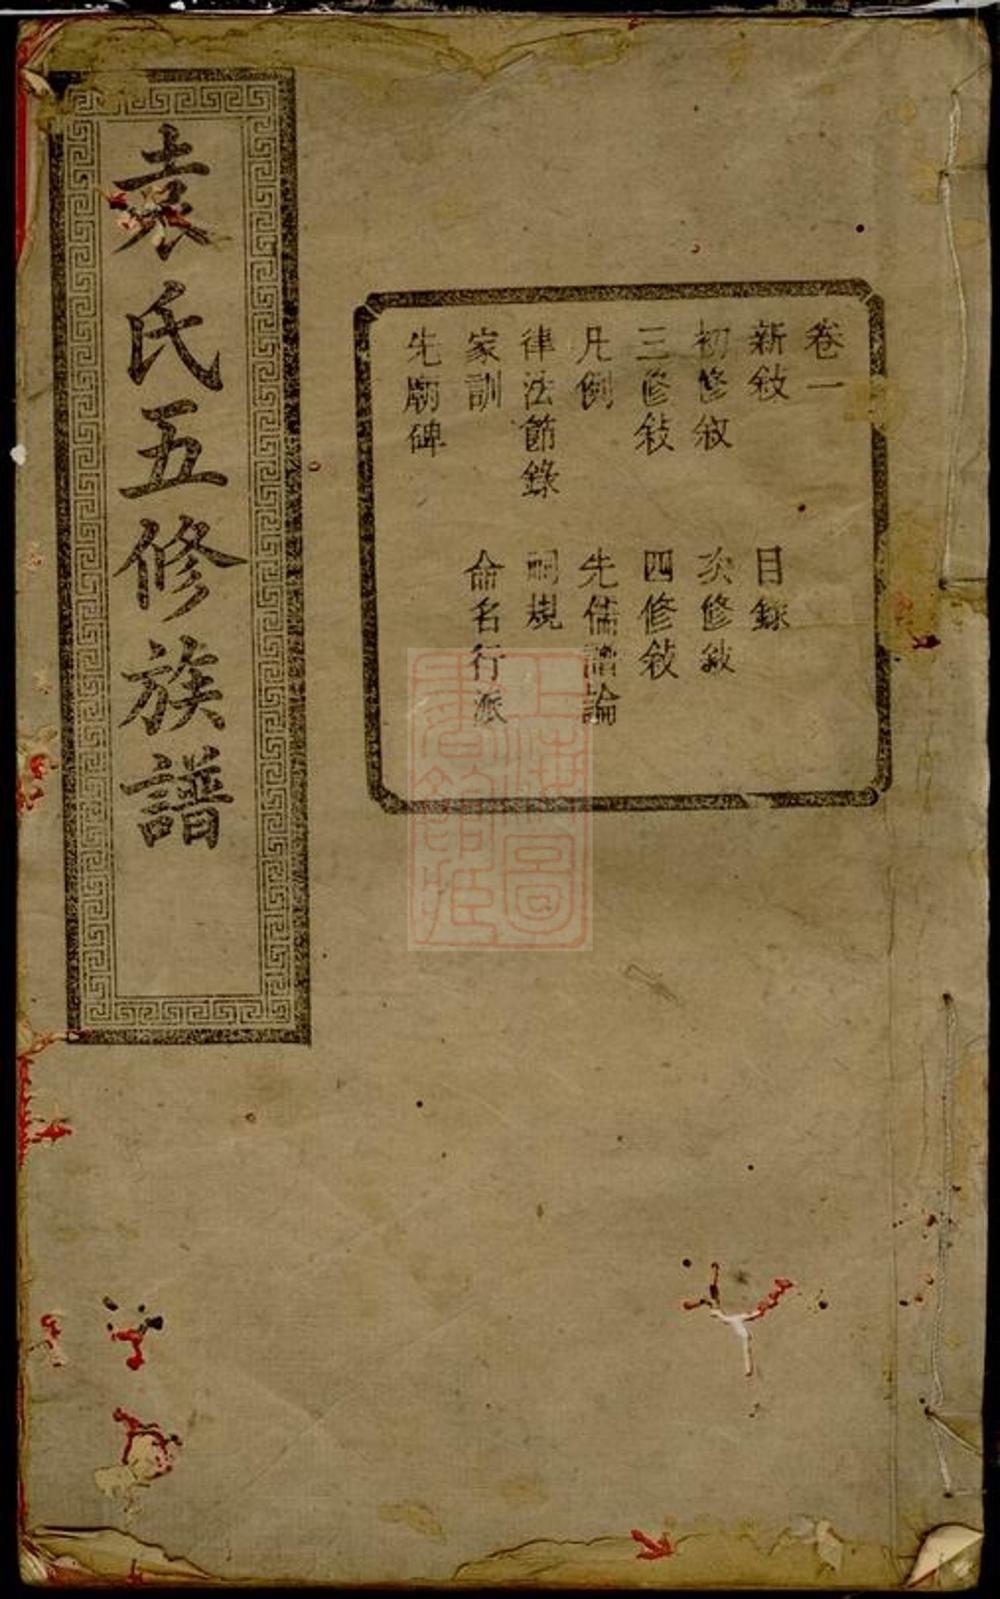 袁氏五修族譜
卷一
新敍 目錄
初修敍 次修敍
三修敍 四修敍
凡例 先儒譜論
律法節錄 祠規
家訓 命名行派
先廟碑
上海圖書館藏